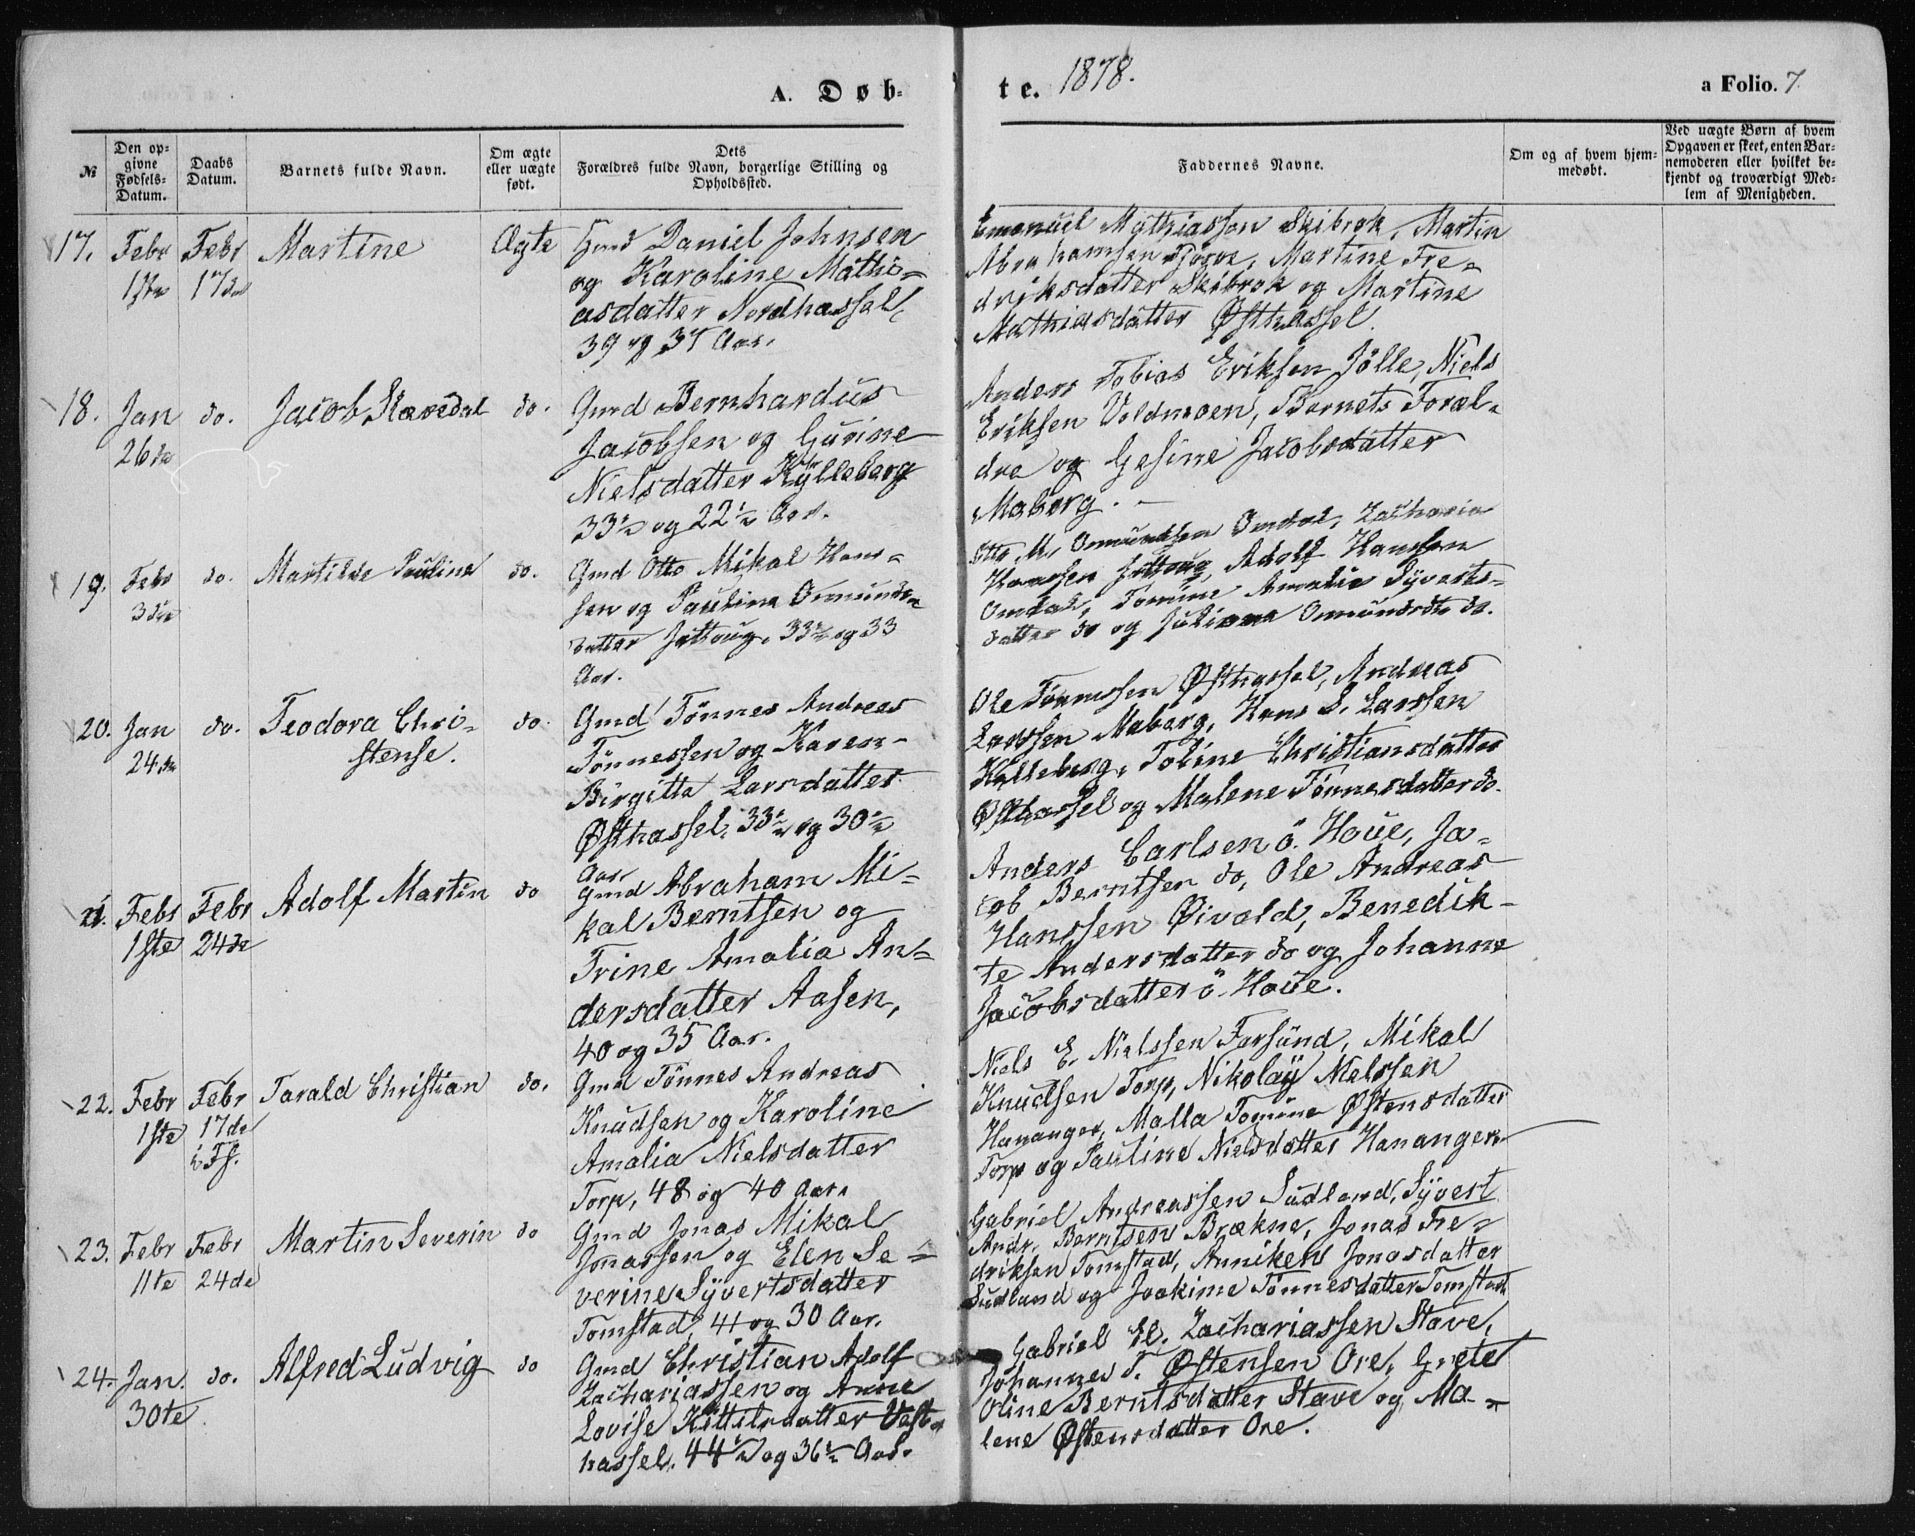 A. Døb-
te. 1878.
a Folio. 7.
№
Den op-
givne
Fødsels-
Datum.
Daabs
Datum.
Barnets fulde Navn.
Om ægte
eller uægte
født.
Dets
Forældres fulde Navn, borgerlige Stilling og
Opholdssted.
Faddernes Navne.
Om og af hvem hjem-
medøbt.
Ved uægte Børn af hvem
Opgaven er skeet, enten Bar-
nemoderen eller hvilket be-
kjendt og troværdigt Med-
lem af Menigheden.
17. Febr Febr Martine Ægte Gmd Daniel Johnsen
1ste 17de og Karoline Mathi-
asdatter Nordhassel,
39 og 37 Aar.
Emanuel Mathiassen Skibrok, Martin
Abrahamsen Tjörve, Martine Fre-
driksdatter Skibrok og Martine
Mathiasdatter Østhassel.
18. Jan do. Jacob Stavedal do. Gmd Bernhardus
26de Jacobsen og Gurine
Nielsdatter Kylleberg
33½ og 22½ Aar.
Anders Tobias Eriksen Jölle, Niels
Eriksen Voldmoen, Barnets Foræl-
dre og Gesine Jacobsdatter
Maberg. —
19. Febr do. Martilde Pauline do. Gmd Otto Mikal Hans-
3die sen og Pauline Ommunds-
datter Jøttoug, 33½ og 33
Aar.
Otto M. Ommundsen Omdal, Zacharia
Hanssen Jøttoug, Adolf Hanssen
Omdal, Tomine Amalie Syverts-
datter do og Juliane Ommundsdtr do.
20. Jan do. Teodora Chri- do. Gmd Tönnes Andreas
24de stense. Tönnessen og Karen
Birgitte Larsdatter
Østhassel, 33½ og 30½
Aar
Ole Tönnessen Østhassel, Andreas
Larssen Maberg, Hans S. Larssen
Kylleberg, Tobine Christiansdatter
Østhassel og Malene Tönnesdatter do.
21. Febr Febr Adolf Martin do Gmd Abraham Mi-
1ste 24de kal Berntsen og
Trine Amalia An-
dersdatter Aasen,
40 og 35 Aar.
Anders Carlsen ö. Houe, Ja-
cob Berntsen do, Ole Andreas
Hanssen Øivold, Benedik-
te Andersdatter do og Johanne
Jacobsdatter ö. Houe.
22. Febr Febr Tarald Christian do. Gmd Tönnes Andreas
1ste 17de Knudsen og Karoline
i Fs. Amalia Nielsdatter
Torp, 48 og 40 Aar.
Niels E. Nielssen Farsund, Mikal
Knudsen Torp, Nikolay Nielssen
Hananger, Malla Tomine Østensdatter
Torp og Pauline Nielsdatter Hananger
23. Febr Febr Martin Severin do Gmd Jonas Mikal
11te 24de Jonassen og Elen Se-
verine Syvertsdatter
Tomstad, 41 og 30 Aar.
Gabriel Andreassen Sudland, Syvert
Andr. Berntsen Brækne, Jonas Fre-
driksen Tomstad, Anniken Jonasdatter
Sudland og Joakime Tönnesdatter Tomstad
24. Jan. do. Alfred Ludvig do Gmd Christian Adolf
30te. Zachariassen og Anne
Lovise Kittilsdatter Vest-
hassel, 44½ og 36½ Aar.
Gabriel El. Zachariassen Stave,
Johannes T. Østensen Ore, Grete
Oline Berntsdatter Stave og Ma-
lene Østensdatter Ore.